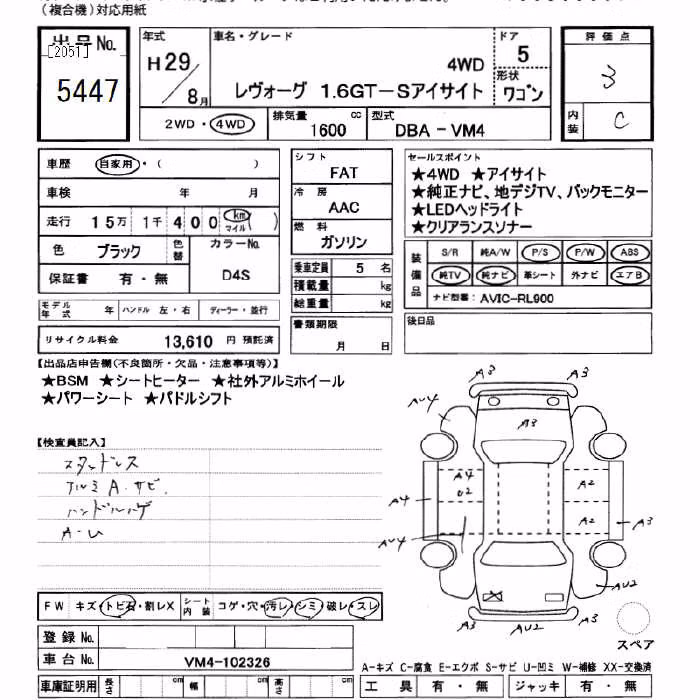 （複合機）対応用紙
出品No.
[2051]
5447
年式
H29/8月
車名・グレード
4WD
レヴォーグ 1.6GT－Sアイサイト
ドア
5
形状
ワゴン
評価点
3
内装
C
2WD・4WD
排気量
1600 cc
型式
DBA－VM4
車歴 自家用・（ ）
車検 年 月
走行 15万 1千 400 km マイル（ ）
色 ブラック
色替
カラーNo.
D4S
保証書 有・無
モデル年式 年 ハンドル 左・右 ディーラー・並行
リサイクル料金 13,610 円 預託済
シフト
FAT
冷房
AAC
燃料
ガソリン
乗車定員 5 名
積載量 kg
総重量 kg
書類期限
月 日
セールスポイント
★4WD ★アイサイト
★純正ナビ、地デジTV、バックモニター
★LEDヘッドライト
★クリアランスソナー
装備品
S/R 純A/W P/S P/W ABS
純TV 純ナビ 革シート 外ナビ エアB
ナビ型番： AVIC－RL900
後日品
【出品店申告欄（不良箇所・欠品・注意事項等）】
★BSM ★シートヒーター ★社外アルミホイール
★パワーシート ★パドルシフト
【検査員記入】
スタッドレス
アルミA.サビ.
ハンドルハゲ
A-U
FW キズ・トビ石・割レX
シート内装 コゲ・穴・汚レ・シミ・破レ・スレ
登録No.
車台No. VM4-102326
車庫証明用 長さ cm 幅 cm 高さ cm
A3 A3
AU4
A3
A4
A4
U2
A2
A2
A3
AU4
AU2
A3 AU2 A3
スペア
A－キズ C－腐食 E－エクボ S－サビ U－凹ミ W－補修 XX－交換済
工具 有・無 ジャッキ 有・無